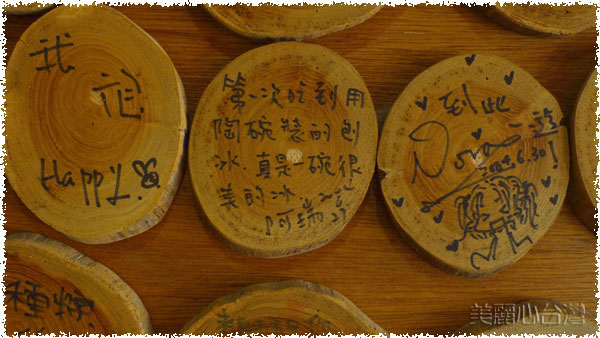 我
Happy
第一次吃到用
陶碗裝的刨
冰,真是一碗很
美的冰
阿瑞
到此
Dora一遊
2004.6.30!
種類
美麗心台灣